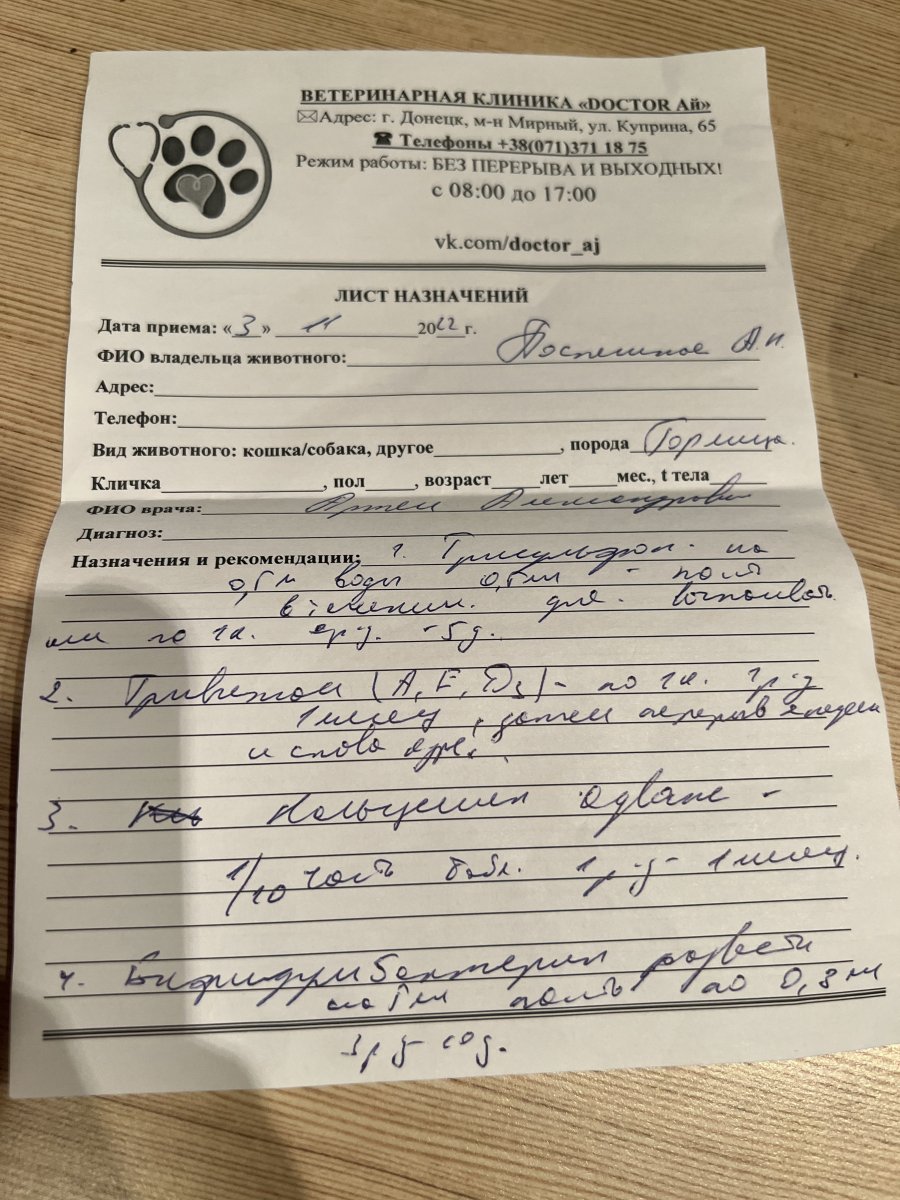 ВЕТЕРИНАРНАЯ КЛИНИКА «DOCTOR Ай»
Адрес: г. Донецк, м-н Мирный, ул. Куприна, 65
Телефоны +38(071)371 18 75
Режим работы: БЕЗ ПЕРЕРЫВА И ВЫХОДНЫХ!
с 08:00 до 17:00
vk.com/doctor_aj
ЛИСТ НАЗНАЧЕНИЙ
Дата приема: «3» 11 2022 г.
ФИО владельца животного: А.И.
Адрес:
Телефон:
Вид животного: кошка/собака, другое, порода Горлица.
Кличка, пол, возраст лет мес., t тела
ФИО врача: Артем Александрович
Диагноз:
Назначения и рекомендации: Трисульфон - на
воды - поить
или по 1 к. 5 д.
2. Тривитам (А, Е, D3) - по 1 к. 1 р-д
1 месяц, затем перерыв
и снова
3. Кальцемин Адванс -
1/10 часть табл. 1 р-д - 1 месяц.
4. Бифидумбактерин развести
поить по 0,3 мл
3 р-д